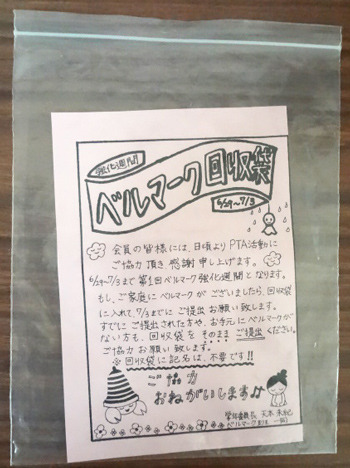 強化週間
ベルマーク回収袋
6/29〜7/3
会員の皆様には、日頃よりPTA活動に
ご協力頂き、感謝申し上げます。
6/29〜7/3まで第1回ベルマーク強化週間となります。
もし、ご家庭にベルマークがございましたら、回収袋
に入れて、7/3までにご提出お願い致します。
すでにご提出された方や、お手元にベルマークが
ない方も、回収袋をそのままご提出ください。
ご協力お願い致します。
※回収袋に記名は、不要です!!
ご協力
おねがいします♪
ベルマーク